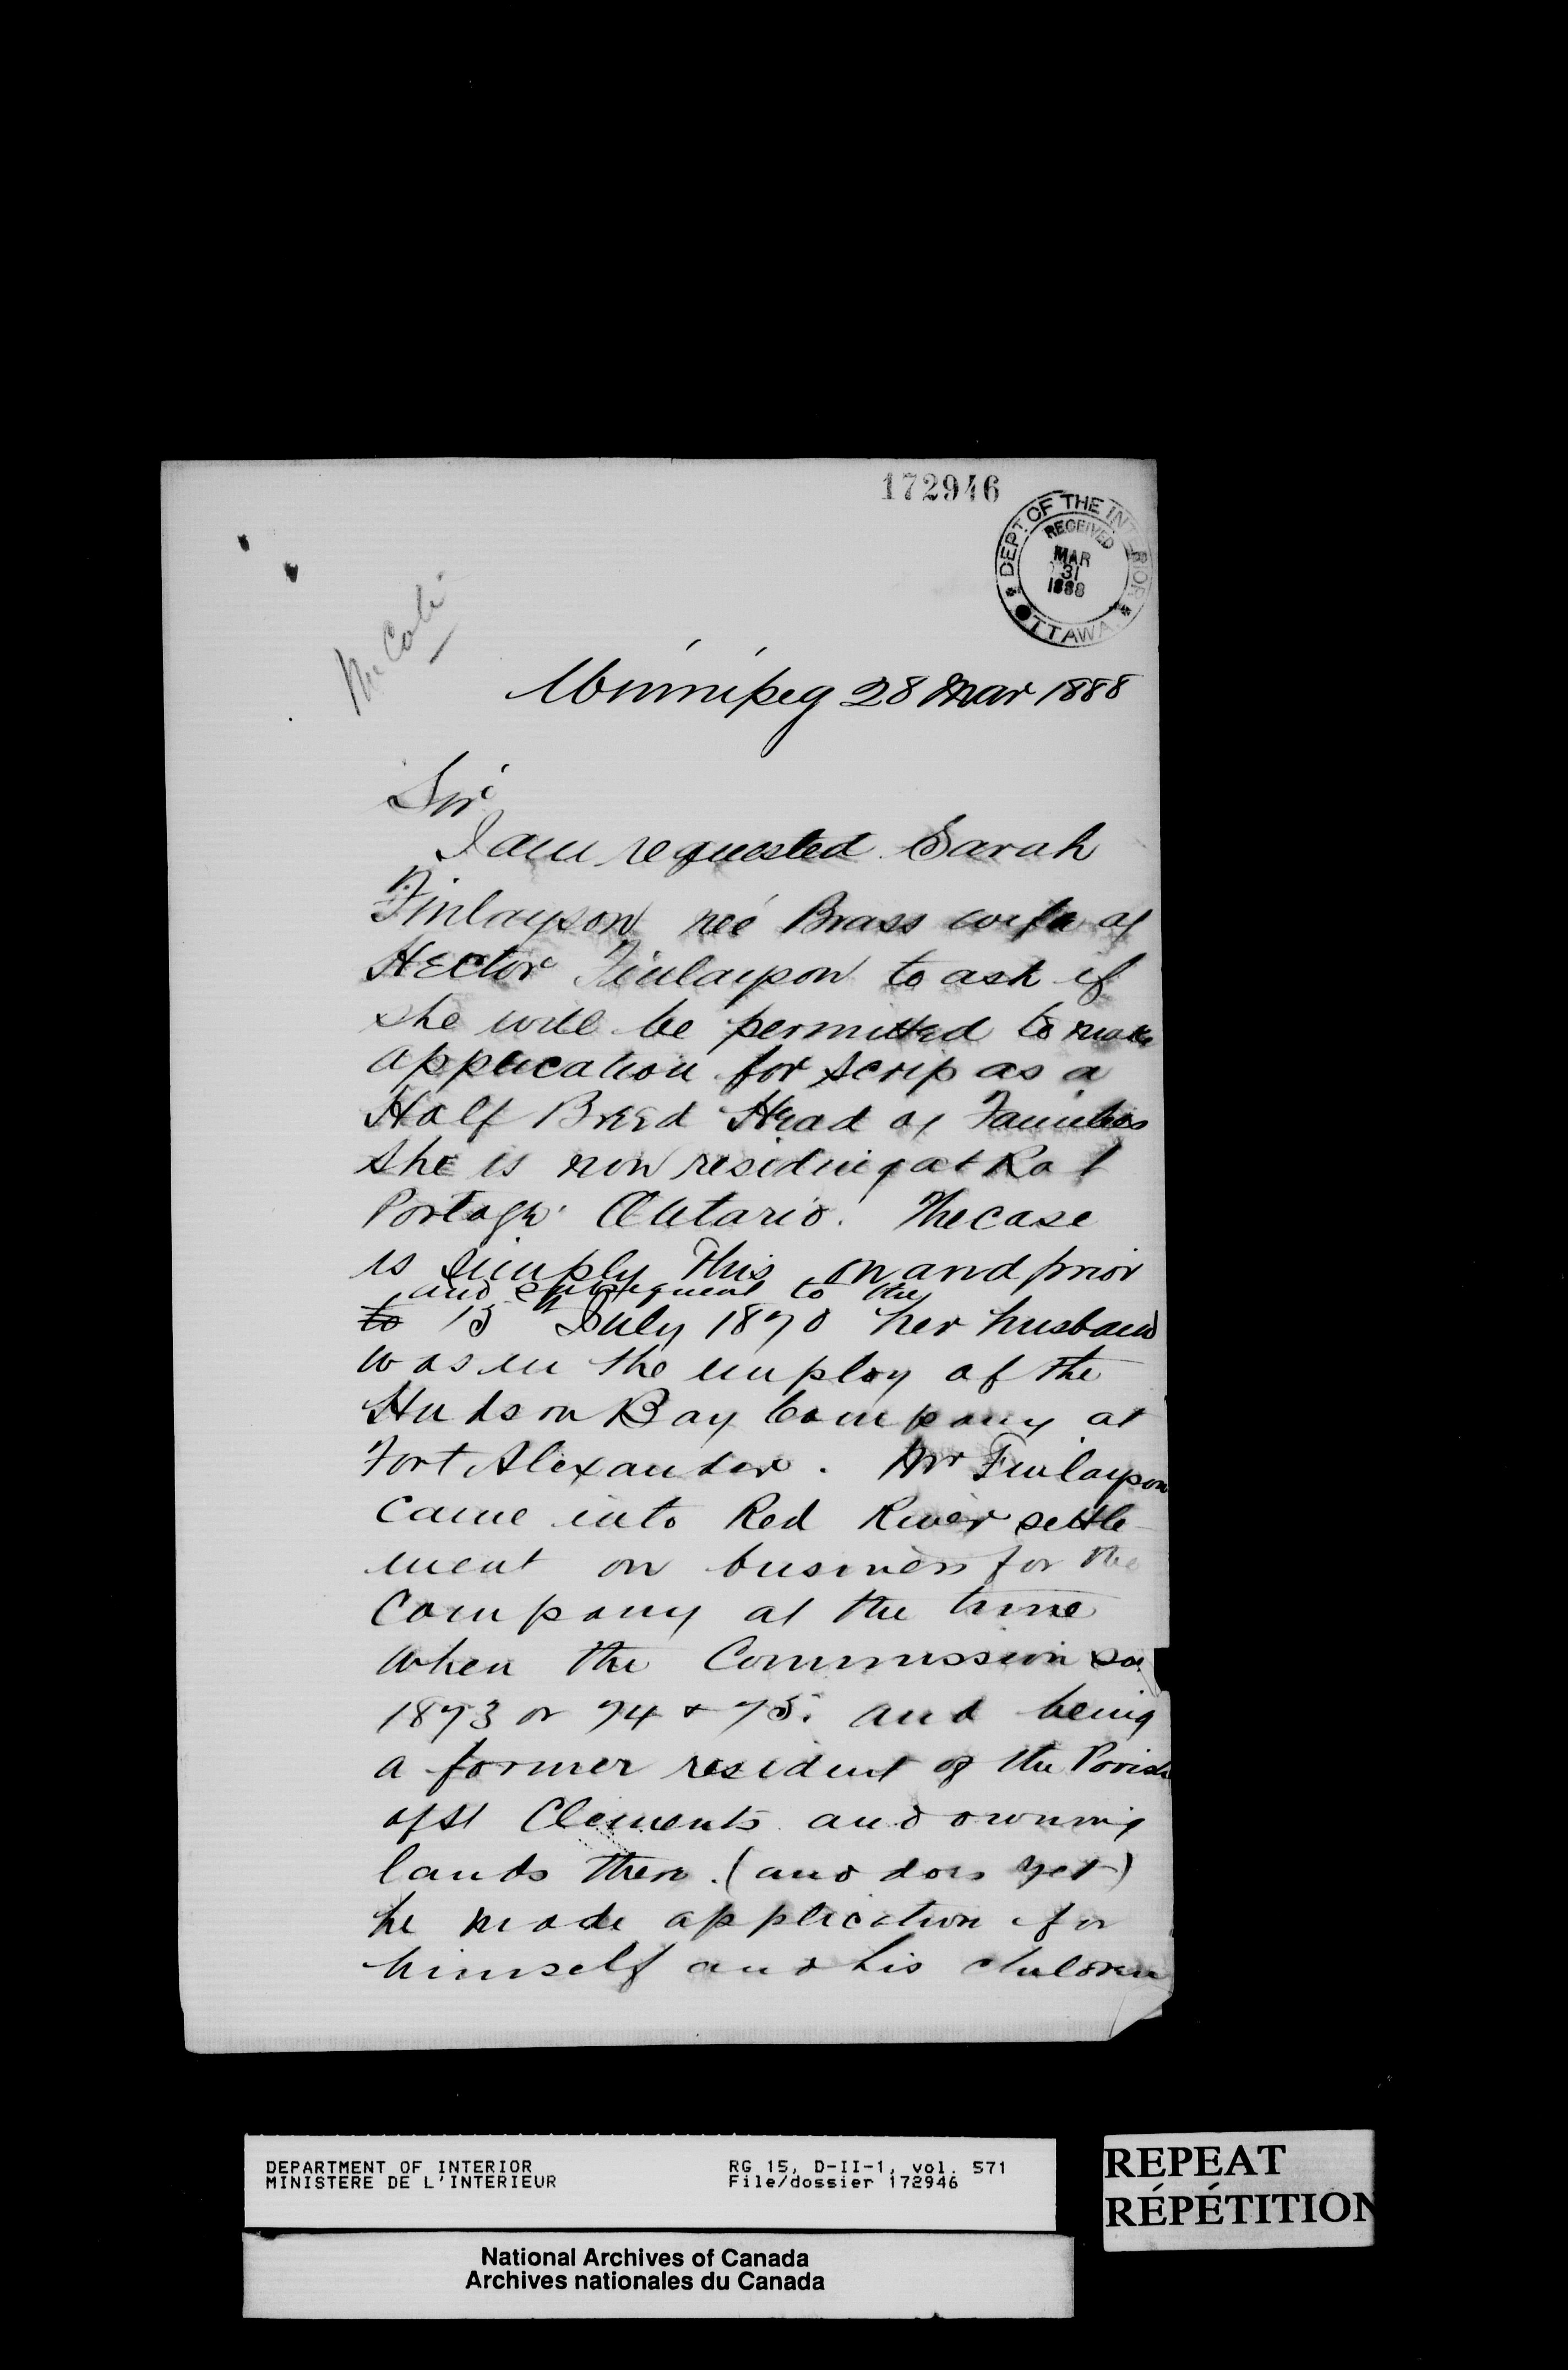 172946
DEPT. OF THE INTERIOR
RECEIVED
MAR
31
1888
OTTAWA
Winnipeg 28 Mar 1888
Sir
I am requested Sarah
Finlayson neé Brass wife of
Hector Finlayson to ask if
she will be permitted to make
application for scrip as a
Half Breed Head of Families
She is now residing at Rat
Portage Ontario. The case
is simply this on and prior
and subsequent to the
to 15th July 1870 her husband
was in the employ of the
Hudson Bay Company at
Fort Alexander. Mr Finlayson
came into Red River settle
ment on business for the
Company at the time
when the Commission
1873 or 74 & 75. and being
a former resident of the Parish
of St Clements and owning
lands there. (and does yet)
he made application for
himself and his children
DEPARTMENT OF INTERIOR
MINISTERE DE L'INTERIEUR
RG 15, D-II-1, vol. 571
File/dossier 172946
REPEAT
RÉPÉTITION
National Archives of Canada
Archives nationales du Canada